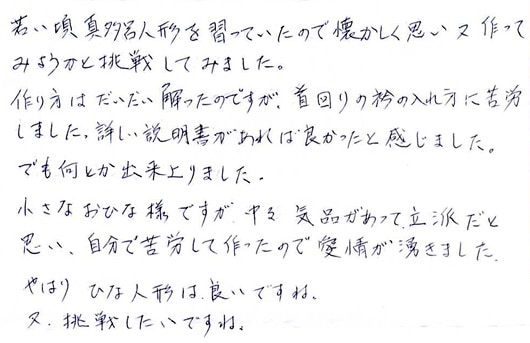 若い頃真多呂人形を習っていたので懐かしく思い又作って
みようかと挑戦してみました。
作り方はだいたい解ったのですが、首回りの衿の入れ方に苦労
しました。詳しい説明書があれば良かったと感じました。
でも何とか出来上りました。
小さなおひな様ですが中々気品があって、立派だと
思い、自分で苦労して作ったので愛情が湧きました。
やはりひな人形は、良いですね。
又、挑戦したいですね。